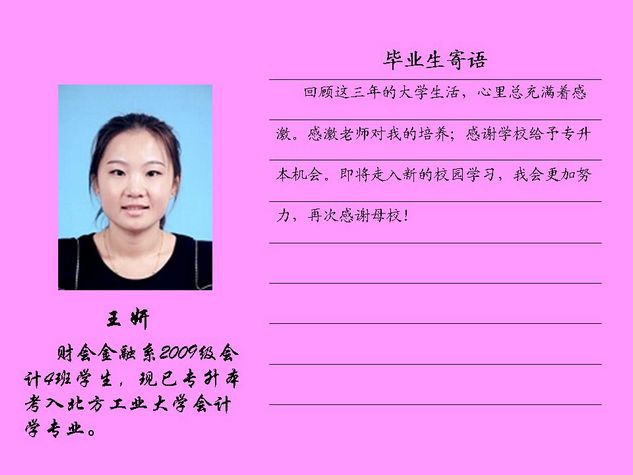 毕业生寄语
回顾这三年的大学生活，心里总充满着感
激。感激老师对我的培养；感谢学校给予专升
本机会。即将走入新的校园学习，我会更加努
力，再次感谢母校！
王妍
财会金融系2009级会
计4班学生，现已专升本
考入北方工业大学会计
学专业。